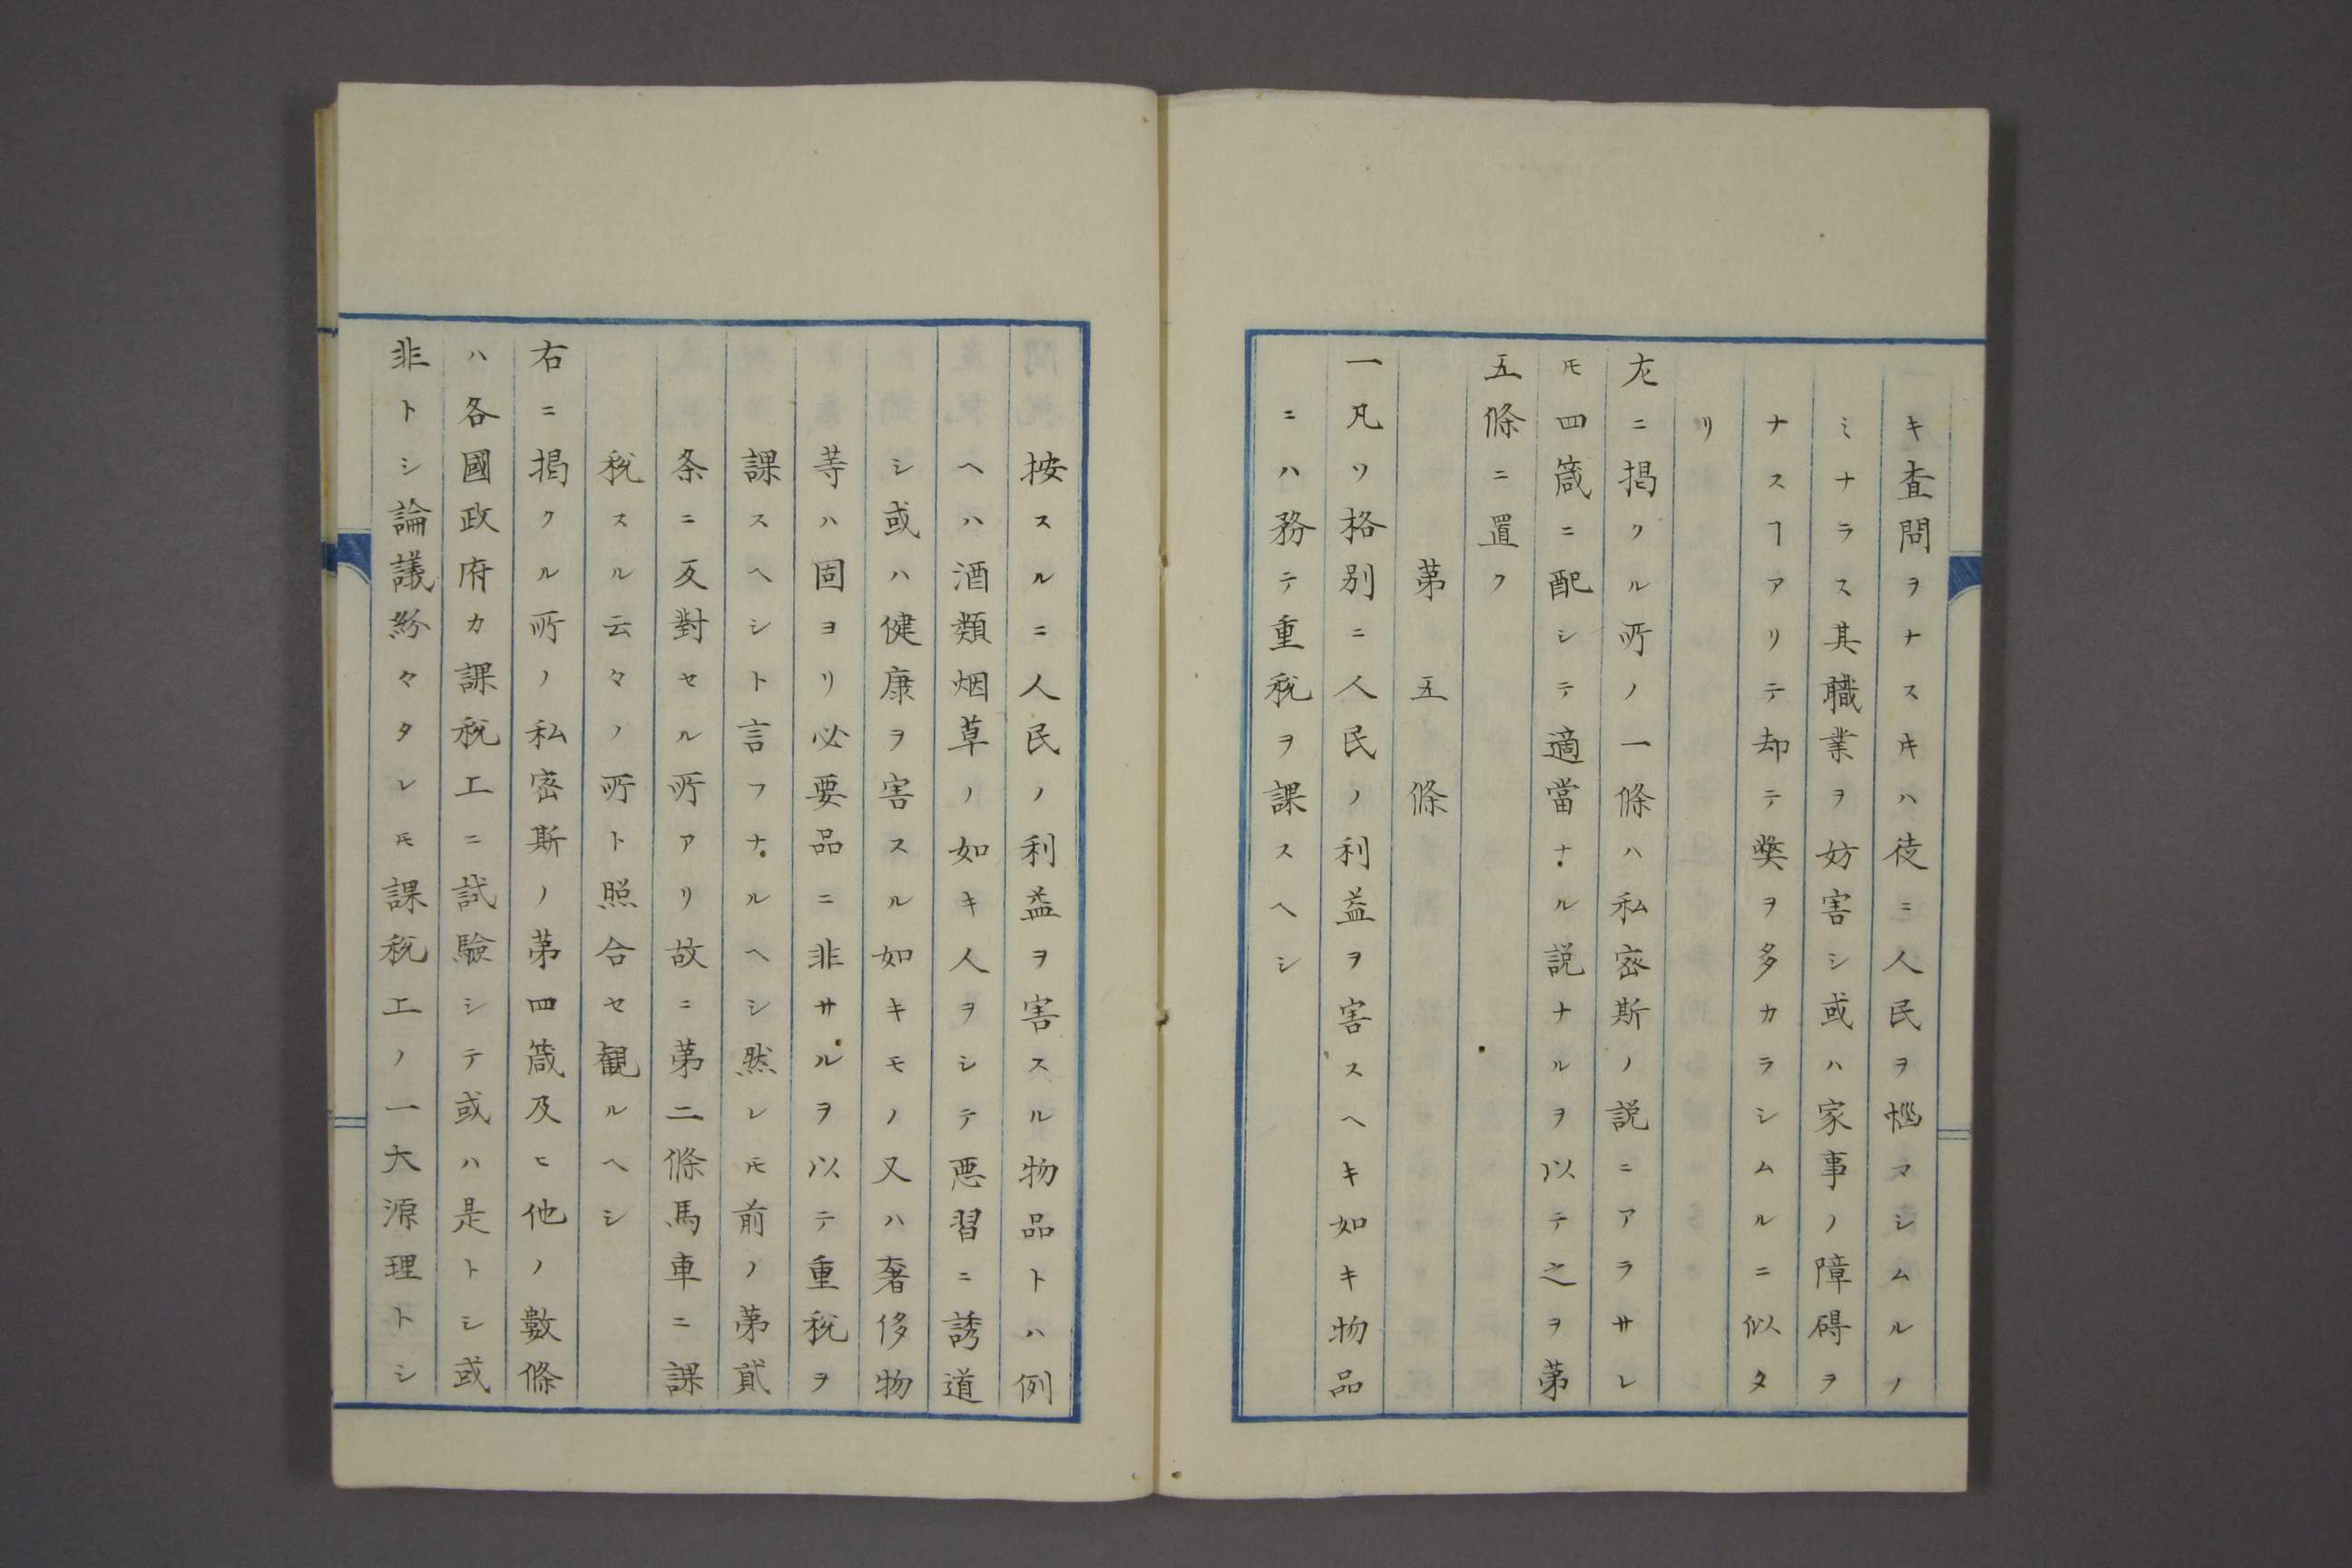 キ査問ヲナスキハ徒ニ人民ヲ惱マシムルノ
ミナラス其職業ヲ妨害シ或ハ家事ノ障碍ヲ
ナスヿアリテ却テ獘ヲ多カラシムルニ似タ
リ
左ニ掲クル所ノ一條ハ私密斯ノ説ニアラサレ
𪜈四箴ニ配シテ適當ナル説ナルヲ以テ之ヲ第
五條ニ置ク
第五條
一凡ソ格別ニ人民ノ利益ヲ害スヘキ如キ物品
ニハ務テ重税ヲ課スヘシ
按スルニ人民ノ利益ヲ害スル物品トハ例
ヘハ酒類烟草ノ如キ人ヲシテ悪習ニ誘道
シ或ハ健康ヲ害スル如キモノ又ハ奢侈物
等ハ固ヨリ必要品ニ非サルヲ以テ重税ヲ
課スヘシト言フナルヘシ然レ𪜈前ノ第貳
条ニ反對セル所アリ故ニ第二條馬車ニ課
税スル云々ノ所ト照合セ観ルヘシ
右ニ掲クル所ノ私密斯ノ第四箴及ヒ他ノ數條
ハ各國政府カ課税工ニ試驗シテ或ハ是トシ或
非トシ論議紛々タレ𪜈課税工ノ一大源理トシ